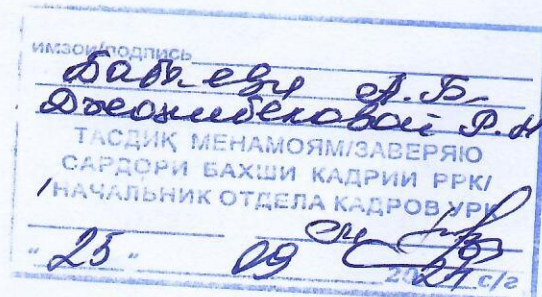 имзои/подпись
А.Б.
Джонибековой Р.Н
ТАСДИҚ МЕНАМОЯМ/ЗАВЕРЯЮ
САРДОРИ БАХШИ КАДРИИ РРК/
/НАЧАЛЬНИК ОТДЕЛА КАДРОВ УРК
"25" 09 2024 с/г